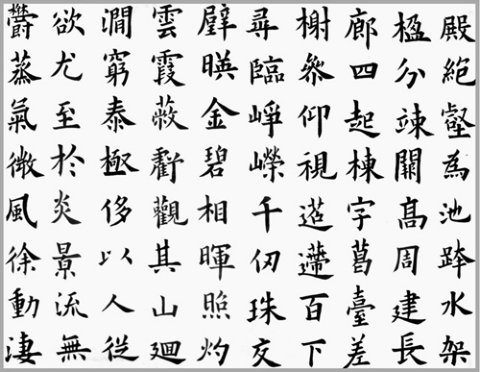 殿絕壑為池跨水架
楹分竦闕高周建長
廊四起棟宇葛臺差
榭參仰視迢遰百下
尋臨崢嶸千仞珠交
璧暎金碧相暉照灼
雲霞蔽虧觀其山廻
澗窮泰極侈以人從
欲尤至於炎景流無
欝蒸氣微風徐動凄